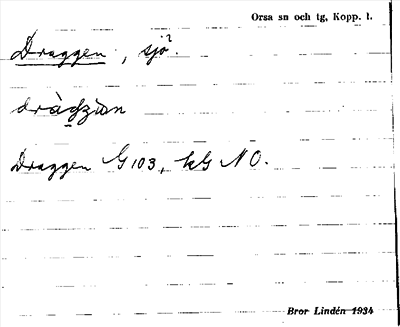 Orsa sn och tg, Kopp. l.
Draggen, sjö?
Draggen G 103, kG NO.
Bror Lindén 1934